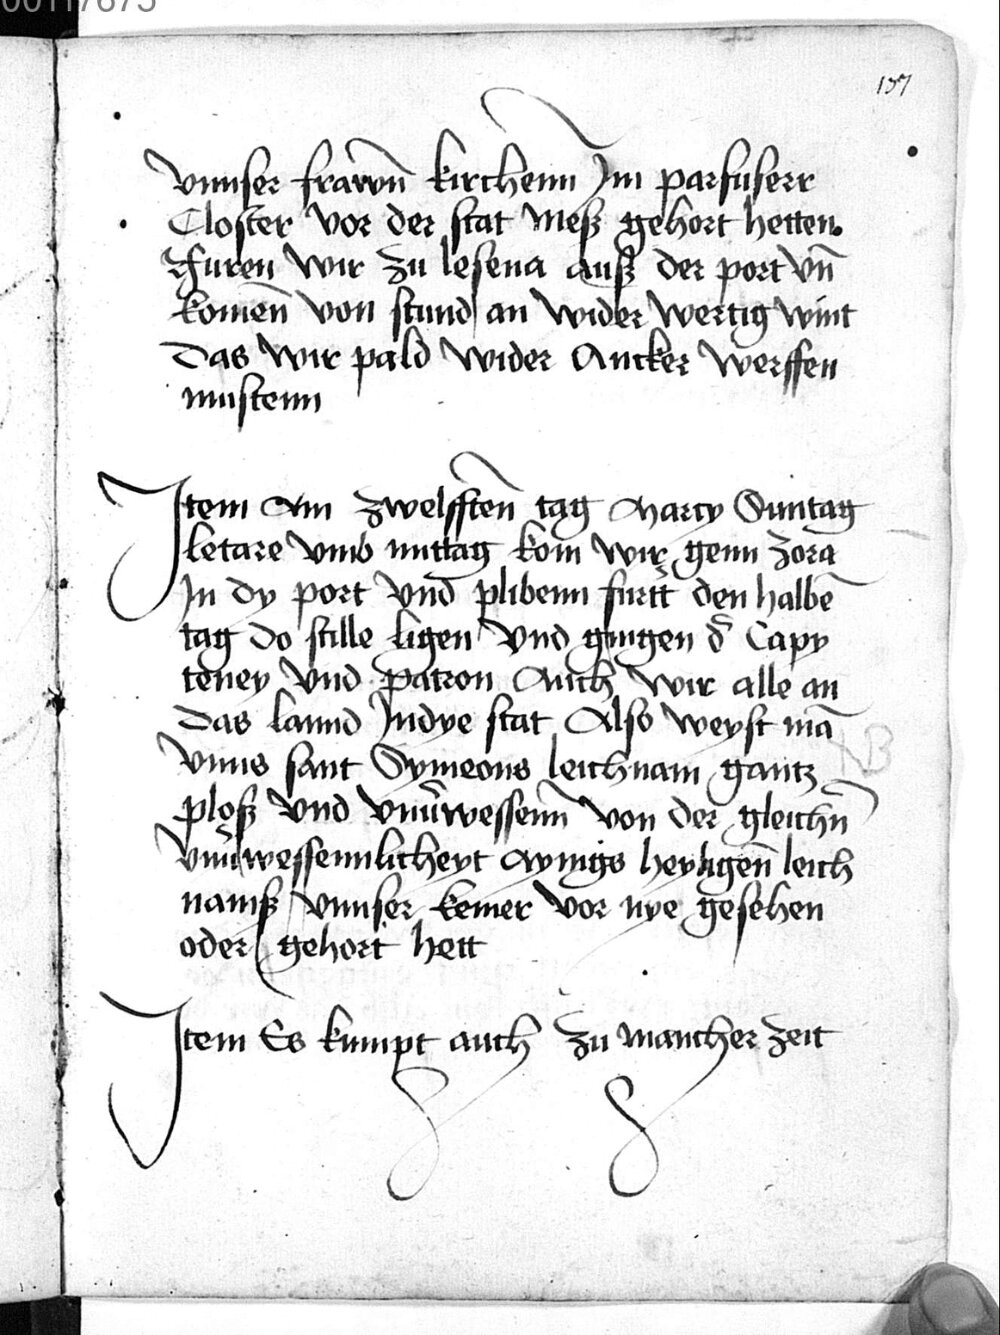 00117675
137
Vnnser frawen̄ kirchenn Jm parfuserr
Closter vor der stat Meß gehort hetten.
furen wir zu lesena auß der port vn̄
komen̄ von stund an wider wertig wint
Das wir pald wider Ancker werffen
mustenn
Jtem Am zwelfften̄ tag Marcy Suntag
letare vmb mittag kom wir genn zora
Jn dy port vnd plibenn furtt den halbē
tag do stille ligen vnd gingen d̄ Capy
teney vnd patron Auch wir alle an
das lannd Jndye stat Also weyst mā
vnns sant Symeons leichnam gantz
ploß vnd vnūwessenn̄ von der gleichn̄
vnūwessennlicheyt aynigs heyligen̄ leich
namß vnnser keiner vor nye gesehen
oder gehort hett
Jtem Es kumpt auch zu mancher zeit